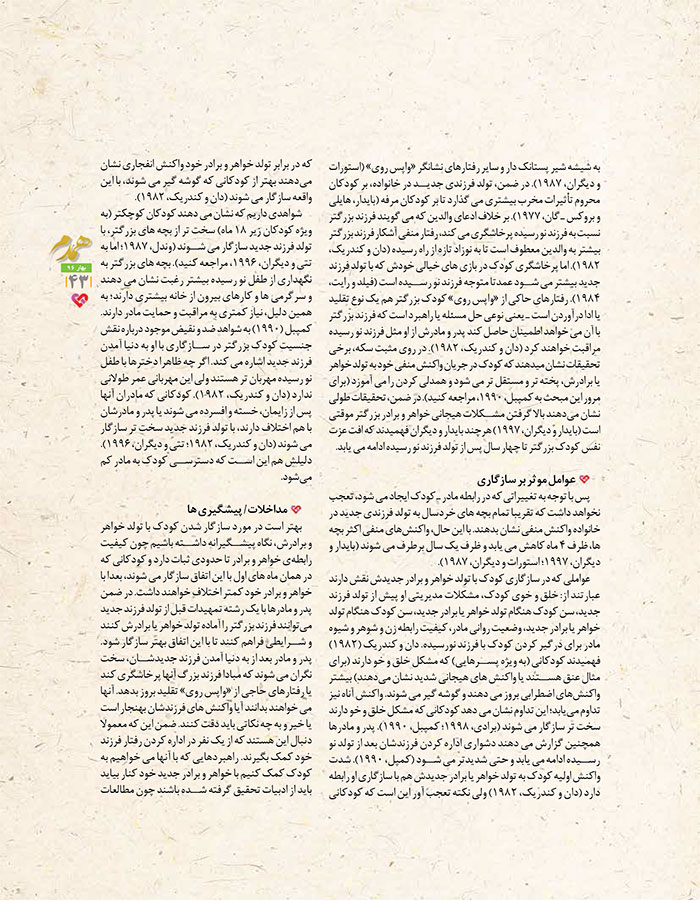 به شیشه شیر پستانک دار و سایر رفتارهای نشانگر «واپس روی» (استورات
و دیگران، ۱۹۸۷). در ضمن، تولد فرزندی جدید در خانواده، بر کودکان
محروم تأثیرات مخرب بیشتری می گذارد تا بر کودکان مرفه (بایدار، هایلی
و بروکس -گان، ۱۹۷۷). بر خلاف ادعای والدین که می گویند فرزند بزرگ تر
نسبت به فرزند نو رسیده پرخاشگری می کند، رفتار منفی آشکار فرزند بزرگ تر
بیشتر به والدین معطوف است تا به نوزاد تازه از راه رسیده (دان و کندریک،
۱۹۸۲). اما پرخاشگری کودک در بازی های خیالی خودش که با تولد فرزند
جدید بیشتر می شود عمدتا متوجه فرزند نو رسیده است (فیلد و رایت،
۱۹۸۴). رفتارهای حاکی از «واپس روی» کودک بزرگ تر هم یک نوع تقلید
یا ادا درآوردن است - یعنی نوعی حل مسئله یا راهبرد است که فرزند بزرگ تر
با آن می خواهد اطمینان حاصل کند پدر و مادرش از او مثل فرزند نو رسیده
مراقبت خواهند کرد (دان و کندریک، ۱۹۸۲). در روی مثبت سکه، برخی
تحقیقات نشان میدهند که کودک در جریان واکنش منفی خود به تولد خواهر
یا برادرش، پخته تر و مستقل تر می شود و همدلی کردن را می آموزد (برای
مرور این مبحث به کمپبل، ۱۹۹۰، مراجعه کنید). در ضمن، تحقیقات طولی
نشان می‌دهند بالا گرفتن مشکلات هیجانی خواهر و برادر بزرگ تر موقتی
است (بایدار و دیگران، ۱۹۹۷) هر چند بایدار و دیگران فهمیدند که افت عزت
نفس کودک بزرگ تر تا چهار سال پس از تولد فرزند نو رسیده ادامه می یابد.
عوامل موثر بر سازگاری
پس با توجه به تغییراتی که در رابطه مادر ـ کودک ایجاد می شود، تعجب
نخواهد داشت که تقریبا تمام بچه های خردسال به تولد فرزندی جدید در
خانواده واکنش منفی نشان بدهند. با این حال، واکنش‌های منفی اکثر بچه
ها، ظرف ۴ ماه کاهش می یابد و ظرف یک سال برطرف می شوند (بایدار و
دیگران، ۱۹۹۷؛ استورات و دیگران، ۱۹۸۷).
عواملی که در سازگاری کودک با تولد خواهر و برادر جدیدش نقش دارند
عبارتند از: خلق و خوی کودک، مشکلات مدیریتی او پیش از تولد فرزند
جدید، سن کودک هنگام تولد خواهر یا برادر جدید، سن کودک هنگام تولد
خواهر یا برادر جدید، وضعیت روانی مادر، کیفیت رابطه زن و شوهر و شیوه
مادر برای درگیر کردن کودک با فرزند نورسیده. دان و کندریک (۱۹۸۲)
فهمیدند کودکانی (به ویژه پسرهایی) که مشکل خلق و خو دارند (برای
مثال عنق هستند یا واکنش های هیجانی شدید نشان می‌دهند) بیشتر
واکنش‌های اضطرابی بروز می دهند و گوشه گیر می شوند. واکنش آناه نیز
تداوم می‌یابد؛ این تداوم نشان می دهد کودکانی که مشکل خلق و خو دارند
سخت تر سازگار می شوند (برادی، ۱۹۹۸؛ کمپبل، ۱۹۹۰). پدر و مادرها
همچنین گزارش می دهند دشواری اداره کردن فرزندشان بعد از تولد نو
رسیده ادامه می یابد و حتی شدیدتر می شود (کمپل، ۱۹۹۰). شدت
واکنش اولیه کودک به تولد خواهر یا برادر جدیدش هم با سازگاری او رابطه
دارد (دان و کندریک، ۱۹۸۲) ولی نکته تعجب آور این است که کودکانی
که در برابر تولد خواهر و برادر خود واکنش انفجاری نشان
می‌دهند بهتر از کودکانی که گوشه گیر می شوند، با این
واقعه سازگار می شوند (دان و کندریک، ۱۹۸۲).
شواهدی داریم که نشان می دهند کودکان کوچکتر (به
ویژه کودکان زیر ۱۸ ماه) سخت تر از بچه های بزرگ تر، با
تولد فرزند جدید سازگار می شوند (وندل، ۱۹۸۷؛ اما به
تتی و دیگران، ۱۹۹۶، مراجعه کنید). بچه های بزرگ تر به
نگهداری از طفل نو رسیده بیشتر رغبت نشان می دهند
و سرگرمی ها و کارهای بیرون از خانه بیشتری دارند؛ به
همین دلیل، نیاز کمتری به مراقبت و حمایت مادر دارند.
کمپبل (۱۹۹۰) به شواهد ضد و نقیض موجود درباره نقش
جنسیت کودک بزرگ تر در سازگاری با او به دنیا آمدن
فرزند جدید اشاره می کند. اگر چه ظاهرا دخترها با طفل
نو رسیده مهربان تر هستند ولی این مهربانی عمر طولانی
ندارد (دان و کندریک، ۱۹۸۲). کودکانی که مادران آنها
پس از زایمان، خسته و افسرده می شوند یا پدر و مادرشان
با هم اختلاف دارند، با تولد فرزند جدید سخت تر سازگار
می شوند (دان و کندریک، ۱۹۸۲؛ تتی و دیگران، ۱۹۹۶).
دلیلش هم این است که دسترسی کودک به مادر کم
می‌شود.
مداخلات/ پیشگیری ها
بهتر است در مورد سازگار شدن کودک با تولد خواهر
و برادرش، نگاه پیشگیرانه داشته باشیم چون کیفیت
رابطه‌ی خواهر و برادر تا حدودی ثبات دارد و کودکانی که
در همان ماه های اول با این اتفاق سازگار می شوند، بعدا با
خواهر و برادر خود کمتر اختلاف خواهند داشت. در ضمن
پدر و مادرها با یک رشته تمهیدات قبل از تولد فرزند جدید
می‌توانند فرزند بزرگ تر را آماده تولد خواهر یا برادرش کنند
و شرایطی فراهم کنند تا با این اتفاق بهتر سازگار شود.
پدر و مادر بعد از به دنیا آمدن فرزند جدیدشان، سخت
نگران می شوند که مبادا فرزند بزرگ آنها پرخاشگری کند
یا رفتارهای حاجی از «واپس روی» تقلید بروز بدهد. آنها
می خواهند بدانند آیا واکنش های فرزندشان بهنجار است
یا خیر و به چه نکاتی باید دقت کنند. ضمن این که معمولا
دنبال این هستند که از یک نفر در اداره کردن رفتار فرزند
خود کمک بگیرند. راهبردهایی که با آنها می خواهیم به
کودک کمک کنیم با خواهر و برادر جدید خود کنار بیاید
باید از ادبیات تحقیق گرفته شده باشند چون مطالعات
همدم
بهار ۹۶
۴۳